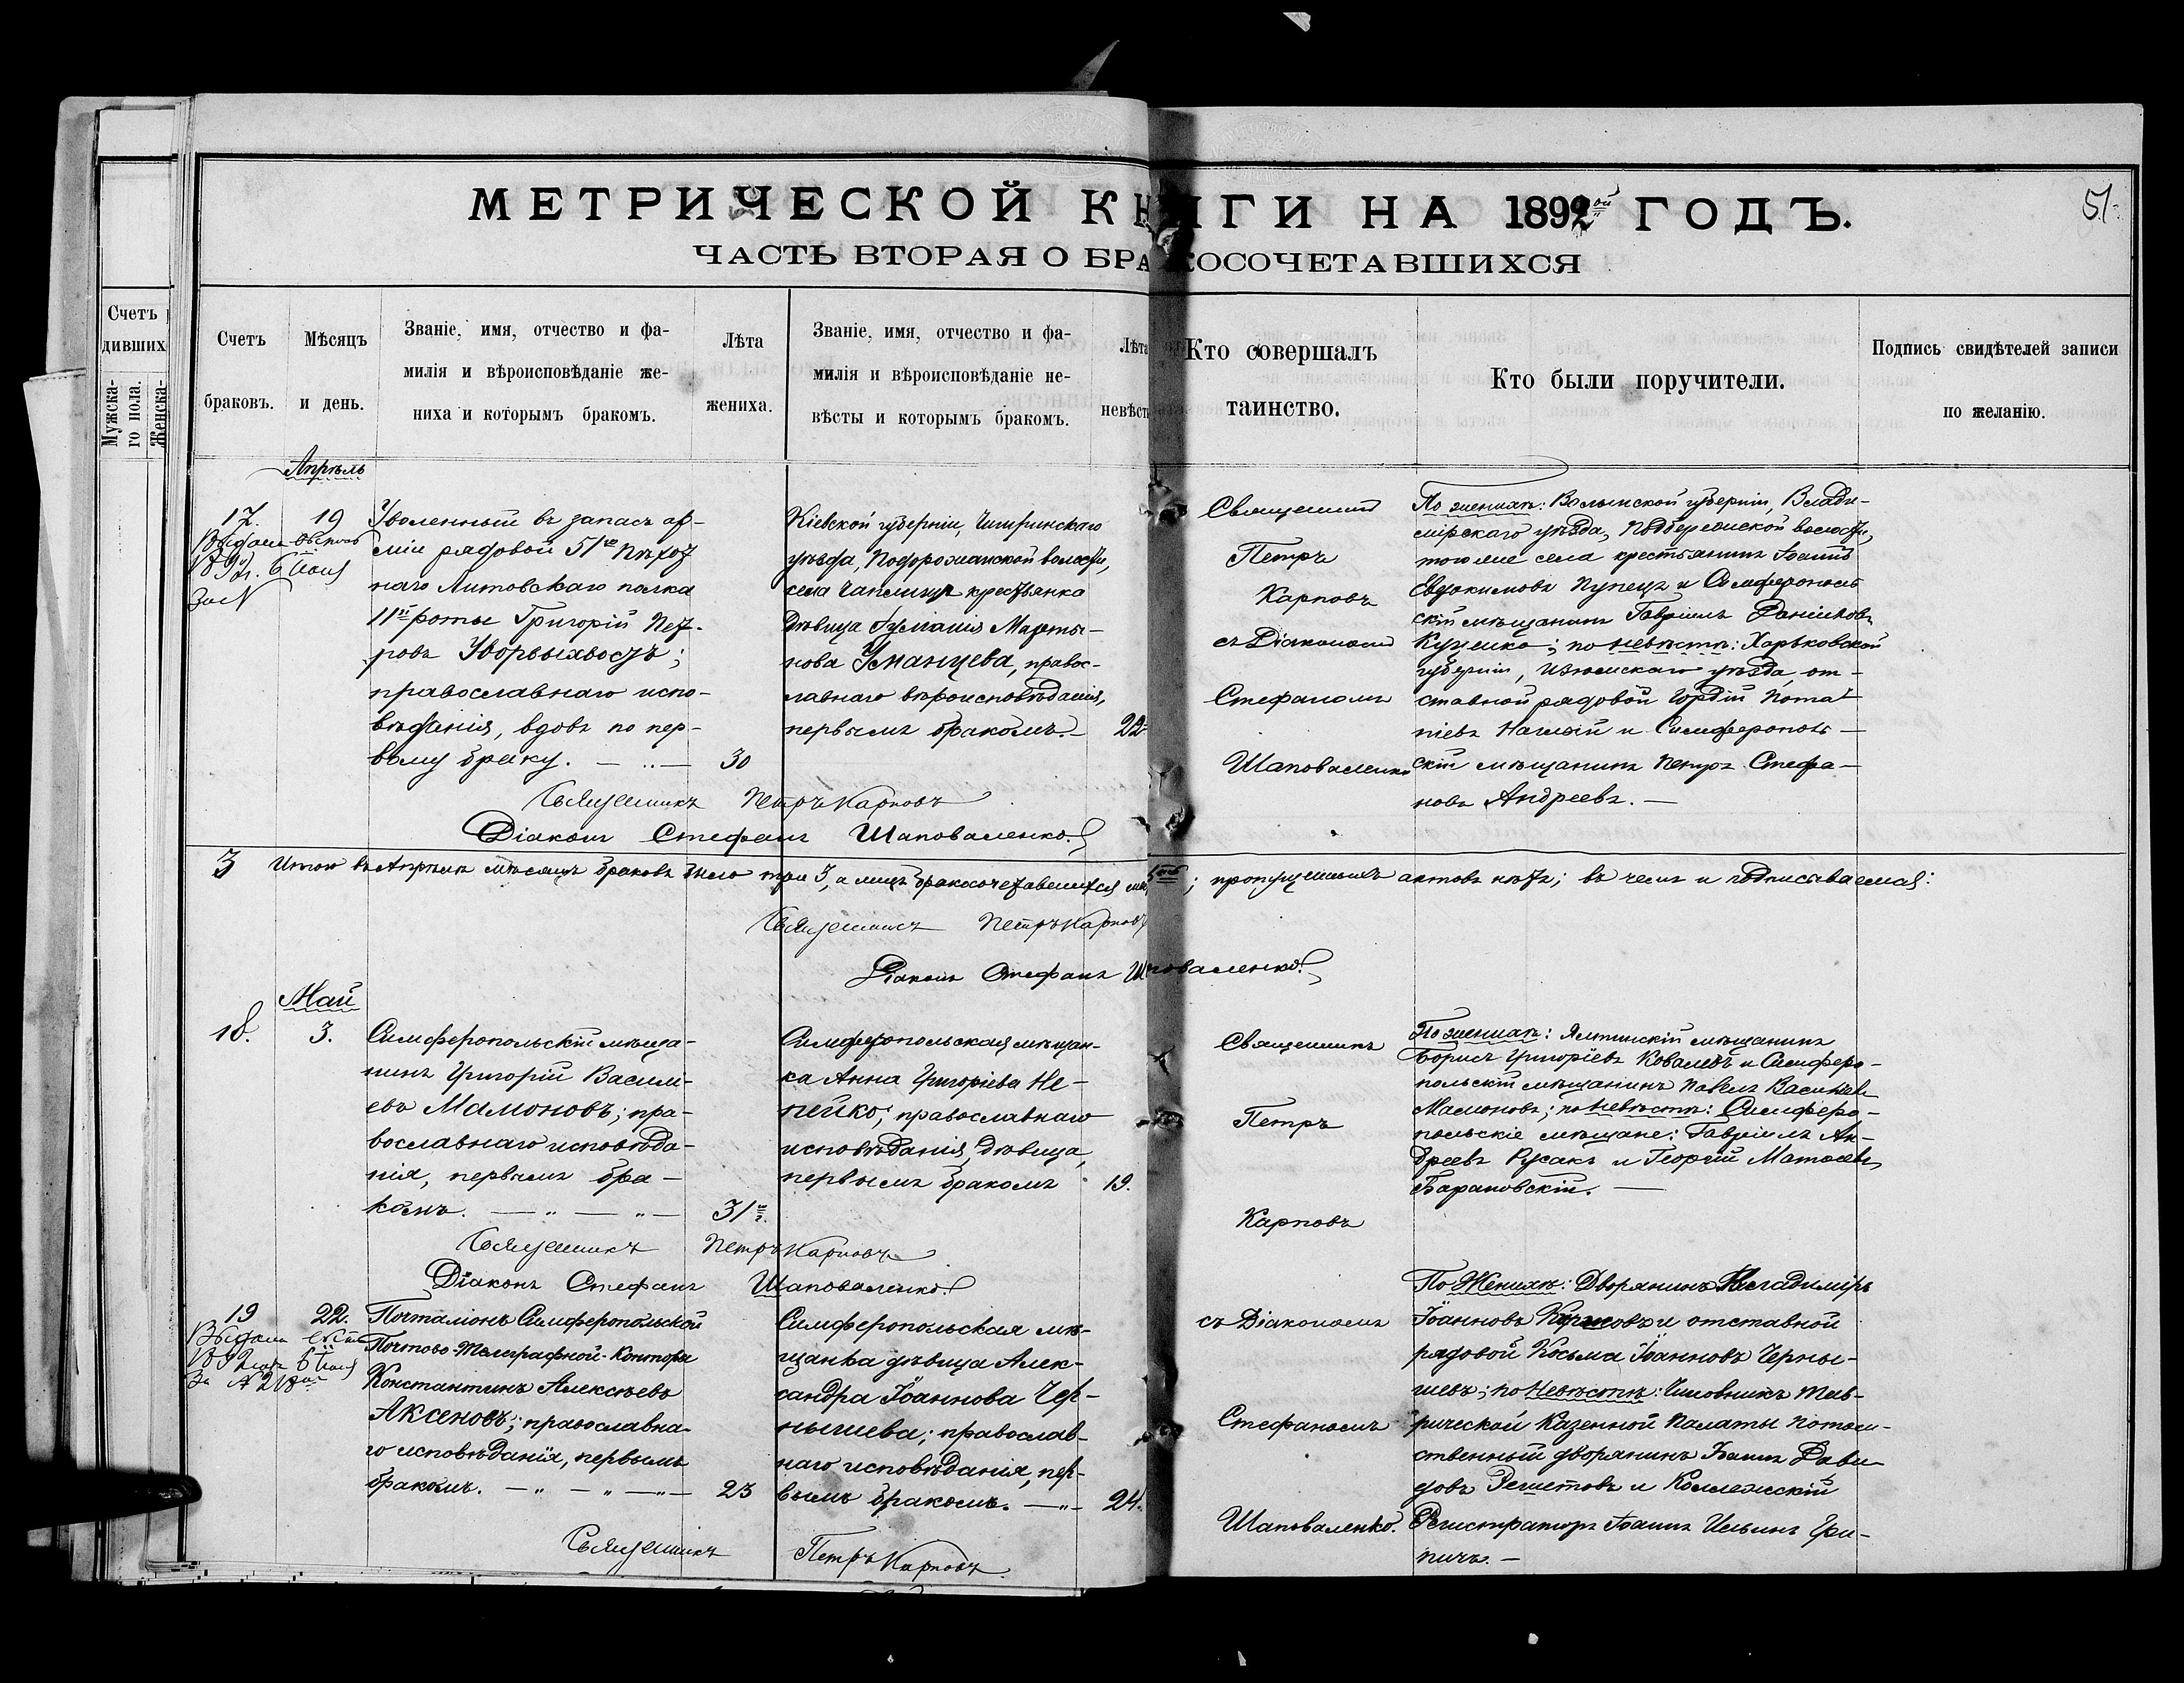 МЕТРИЧЕСКОЙ КНИГИ НА 1892ой ГОДЪ.
51.
ЧАСТЬ ВТОРАЯ О БРАКОСОЧЕТАВШИХСЯ
Счетъ
дивших
Мужска-
го пола.
Женска-
Счетъ
браковъ.
Мѣсяцъ
и день.
Званіе, имя, отчество и фа-
милія и вѣроисповѣданіе же-
ниха и которымъ бракомъ.
Лѣта
жениха.
Званіе, имя, отчество и фа-
милія и вѣроисповѣданіе не-
вѣсты и которымъ бракомъ.
Лѣта
невѣст
Кто совершалъ
таинство.
Кто были поручители.
Подпись свидѣтелей записи
по желанію.
Апрѣль
17.
19
Уволенный въ запасъ ар-
міи рядовой 51го пѣхот
наго Литовскаго полка
11й роты Григорій Пет-
ровъ Уворвыхвостъ;
православнаго испо-
вѣданія, вдовъ по пер-
вому браку.
30
Кіевской губерніи, Чигиринскаго
уѣзда, Подорожанской волости,
села крестьянка
дѣвица Марты-
нова Уманцева, правос-
лавнаго вѣроисповѣданія,
первымъ бракомъ.
22
Священникъ
Петръ
Карповъ
съ Діакономъ
Стефаномъ
Шаповаленко
По женихѣ: Волынской губерніи, Влади-
мірскаго уѣзда, волости,
того же села крестьянинъ Іоаннъ
Евдокимовъ Пупецъ и Симферополь
скій мѣщанинъ Гавріилъ
по невѣстѣ: Харьковской
губерніи, Изюмскаго уѣзда, от-
ставной рядовой Гордій Пота-
піевъ и Симферополь-
скій мѣщанинъ Петръ Стефа-
новъ Андреевъ.
Священникъ Петръ Карповъ
Діаконъ Стефанъ Шаповаленко.
3 Итого въ Апрѣлѣ мѣсяцѣ браковъ было три 3, а лицъ бракосочетавшихся ; пропущенныхъ актовъ нѣтъ; въ чемъ и подписываемся:
Священникъ Петръ Карповъ
Діаконъ Стефанъ Шаповаленко.
Май
18.
3.
Симферопольскій мѣща-
нинъ Григорій Василі-
евъ Мамоновъ; пра-
вославнаго исповѣда-
нія, первымъ бра-
комъ.
31
Симферопольская мѣщан-
ка Анна Григоріева Не-
пейко; православнаго
исповѣданія, дѣвица,
первымъ бракомъ
19.
Священникъ
Петръ
Карповъ
По женихѣ: Ялтинскій мѣщанинъ
Борисъ Григоріевъ Ковалевъ и Симферо-
польскій мѣщанинъ Павелъ Васильевъ
Мамоновъ; по невѣстѣ: Симферо-
польскіе мѣщане: Гавріилъ Ан-
дреевъ Русакъ и Георгій Матвеевъ
Барановскій.
Священникъ Петръ Карповъ
Діаконъ Стефанъ Шаповаленко.
19
22.
Почталіонъ Симферопольской
Почтово-Телеграфной-Конторы
Константинъ Алексѣевъ
Аксеновъ; православна-
го исповѣданія, первымъ
бракомъ.
23
Симферопольская мѣ-
щанка дѣвица Алек-
сандра Іоаннова Чер-
нышева; православ-
наго исповѣданія, пер-
вымъ бракомъ.
24.
съ Діакономъ
Стефаномъ
Шаповаленко.
По Женихѣ: Дворянинъ Владиміръ
Іоанновъ и отставной
рядовой Косьма Іоанновъ Черны-
шевъ; по Невѣстѣ: Чиновникъ Тав-
рической Казенной Палаты потом-
ственный дворянинъ Іоаннъ Дави-
довъ Решетовъ и Коллежскій
Регистраторъ Іоаннъ Ильинъ Гри-
ничъ.
Священникъ Петръ Карповъ